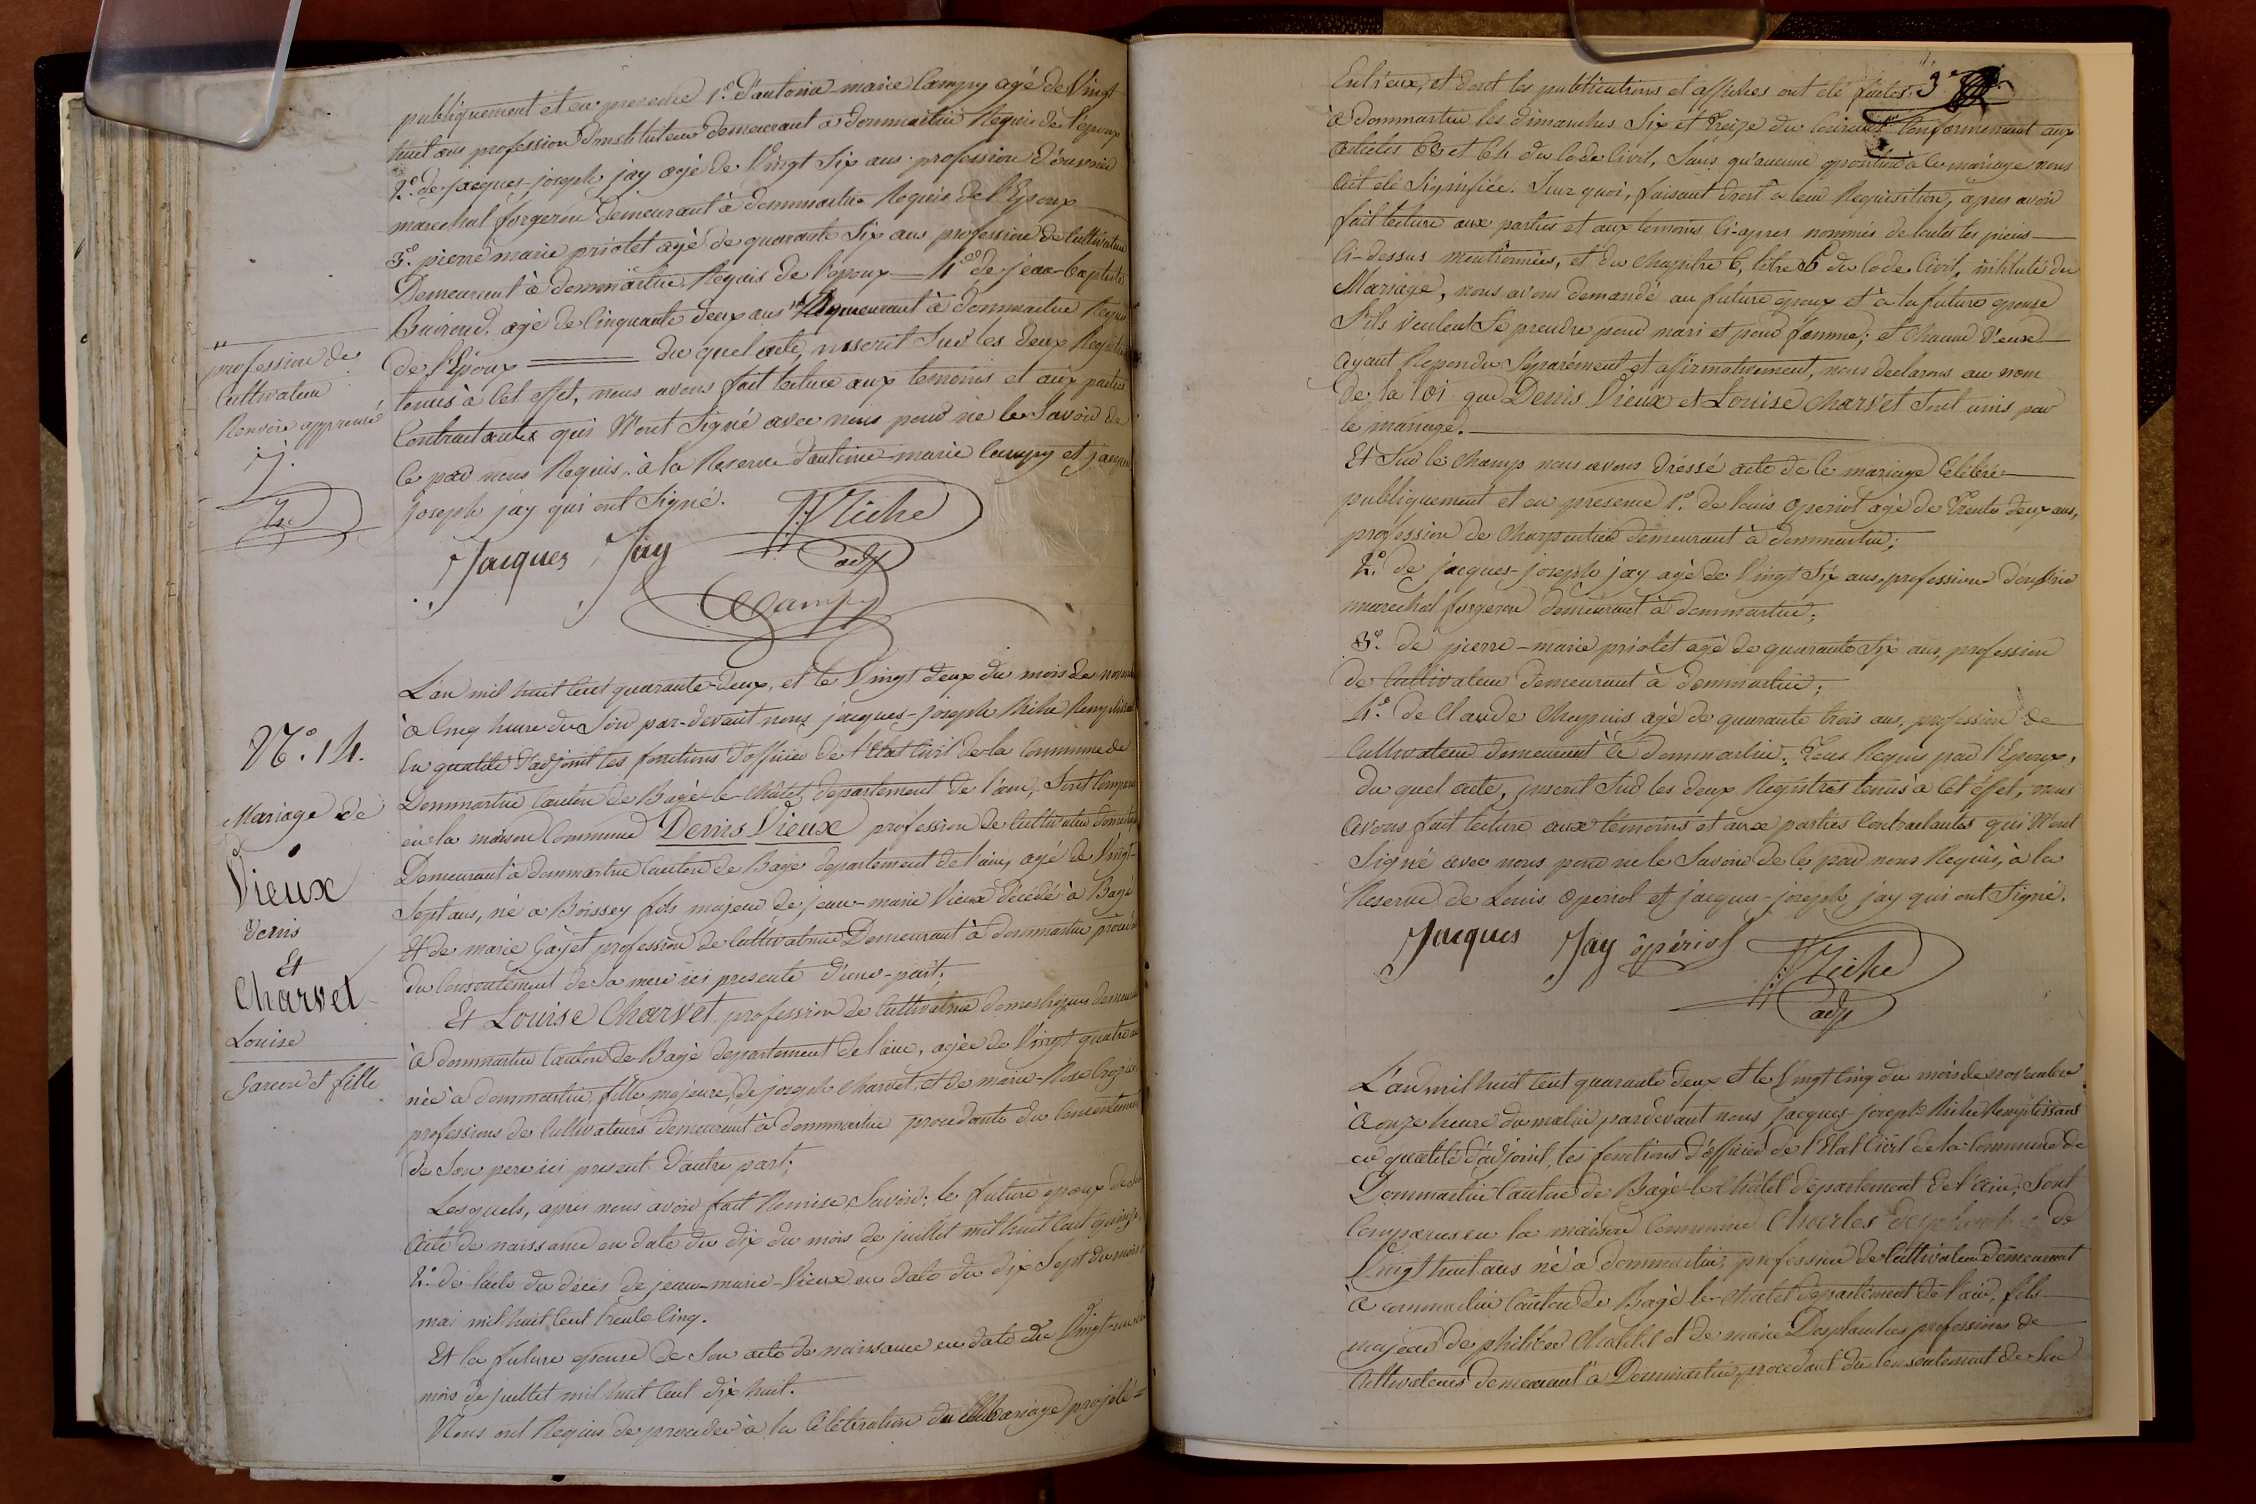 publiquement et en presence 1.° d'antoine marie Campy agé de Vingt
huit ans profession d'instituteur demeurant à dommartin Requis de l'époux
2.° de jacques-joseph jay agé de Vingt Six ans profession d'ouvrier
marechal forgeron demeurant à dommartin Requis de l'Epoux
3.° pierre marie priolet agé de quarante Six ans profession de Cultivateur
Demeurant à dommartin Requis de l'epoux — 4.° de jean-baptiste
agé de Cinquante deux ans " Demeurant à dommartin Requis
de l'Epoux — du quel acte, inscrit Sur les deux Registres
tenus à Cet effet, nous avons fait lecture aux temoins et aux parties
Contractantes qui N'ont Signé avec nous pour ne le Savoir de
Ce par nous Requis, à la Reserve d'antoine marie Campy et jacques
joseph jay qui ont Signé.
"
profession de
Cultivateur
Renvoi approuvé
J.
Jacques Jay
adj
Campy
L'an mil huit Cent quarante-deux, et le Vingt deux du mois de novembre
à Cinq heure du Soir par-devant nous jacques-joseph Miche Remplissant
En qualité d'adjoint les fonctions d'officier de l'Etat Civil de la Commune de
Dommartin Canton de Bagé-le-Châtel, departement de l'ain; Sont Comparus
en la maison Commune Denis Vieux profession de Cultivateur domestique
Demeurant à dommartin Canton de Bagé departement de l'ain, agé de Vingt-
Sept ans, né à Boissey fils majeur de jean-marie Vieux décédé à Bagé
Et de marie Gayet profession de Cultivatrice Demeurant à dommartin procédant
du Consentement de Sa mere ici presente d'une-part;
Et Louise Charvet profession de Cultivatrice domestique demeurant
à dommartin Canton de Bagé departement de l'ain, agée de Vingt quatre ans
née à dommartin, fille majeure, de joseph Charvet et de marie-Rose
professions de Cultivateurs demeurant à dommartin procedante du Consentement
de Son pere ici present d'autre part;
Lesquels, après nous avoir fait Remise, Savoir: le future epoux de Son
acte de naissance en date du dix du mois de juillet mil huit Cent quinze
2.° de l'acte du décès de jean-marie-Vieux en date du dix Sept du mois de
mai mil huit Cent trente Cinq.
Et la future epouse de Son acte de naissance en date du Vingt-un du
mois de juillet mil huit Cent dix huit.
Nous ont Requis de proceder à la Célébration du Mariage projeté
N.° 14.
Mariage de
Vieux
Denis
Et
Charvet
Louise
Garcon et fille
3
Entr'eux, et dont les publications et affiches ont été faites
à dommartin les dimanches Six et Treize du Courant Conformement aux
articles 63 et 64 du Code Civil, Sans qu'aucune opposition à Ce mariage nous
ait été Signifiée. Sur quoi, faisant droit à leur Requisition, apres avoir
fait lecture aux parties et aux temoins Ci-apres nommés de toutes les pieces
Ci-dessus mentionnées, et du Chapitre 6, titre 5 du Code Civil, intitulé du
Mariage, nous avons demandé au future epoux et à la future epouse
S'ils veulent Se prendre pour mari et pour femme; et Chacun d'eux
ayant Repondu Séparément et affirmativement, nous declarons au nom
de la loi que Denis Vieux et Louise Charvet Sont unis par
le mariage.
Et Sur le Champ nous avons dréssé acte de Ce mariage Célébré
publiquement et en presence 1.° de louis operiol agé de Trente deux ans,
profession de Charpentier demeurant à dommartin;
2.° de jacques-joseph jay agé de Vingt Six ans, profession d'ouvrier
marechal forgeron demeurant à dommartin;
3.° de pierre-marie priolet agé de quarante Six ans, profession
de Cultivateur demeurant à dommartin;
4.° de Claude Chapuis agé de quarante trois ans, profession de
Cultivateur demeurant à dommartin. Tous Requis par l'Epoux,
du quel acte, inscrit Sur les deux Registres tenus à Cet éffet, nous
avons fait lecture aux témoins et aux parties Contractantes qui N'ont
Signé avec nous pour ne le Savoir de Ce par nous Requis, à la
Reserve de Louis operiol et jacques-joseph jay qui ont Signé.
Jacques Jay opériol
Miche
adj
L'an mil huit Cent quarante deux et le Vingt Cinq du mois de novembre
à onze heure du matin pardevant nous jacques-joseph Miche Remplissant
en qualité d'adjoint, les fonctions d'officier de l'Etat Civil de la Commune de
Dommartin Canton de Bagé-le-Châtel departement de l'ain; Sont
Comparus en la maison Commune Charles de
Vingt huit ans né à dommartin, profession de Cultivateur demeurant
à dommartin Canton de Bagé-le-Châtel departement de l'ain, fils
majeur de philibert et de marie Desplanches professions de
Cultivateurs demeurant à Dommartin, procedant du Consentement de Son